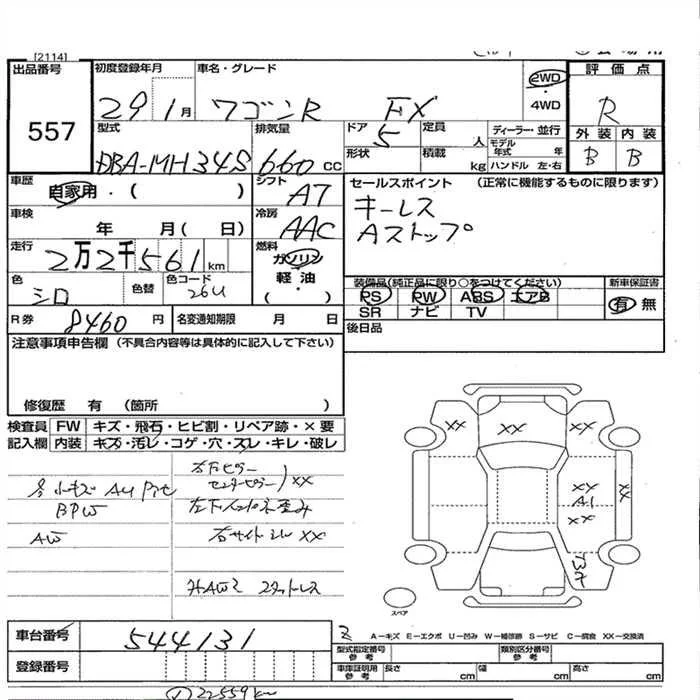 [2114]
出品番号
557
初度登録年月
29 1月
車名・グレード
ワゴンR FX
2WD
・
4WD
評価点
R
外装 内装
B B
型式
DBA-MH34S
排気量
660 cc
ドア
5
形状
定員
人
積載
kg
ディーラー・並行
モデル年式 年
ハンドル 左・右
車歴
自家用・( )
シフト
A7
車検
年 月( 日)
冷房
AAC
走行
2万2千561km
燃料
ガソリン
軽油
( ・ )
色
シロ
色替
色コード
26U
セールスポイント (正常に機能するものに限ります)
キーレス
Aストップ
装備品(純正品に限り○をつけてください)
PS PW ABS エアB
SR ナビ TV
新車保証書
有 無
R券 8460 円
名変通知期限 月 日
後日品
注意事項申告欄 (不具合内容等は具体的に記入して下さい)
修復歴 有 (箇所 )
検査員
記入欄
FW キズ・飛石・ヒビ割・リペア跡・×要
内装 キズ・汚レ・コゲ・穴・スレ・キレ・破レ
右下ピラー
センターピラー XX
BPW
AW
右サイドシル XX
スタッドレス
XX
XX
XX
XX
XY
A1
XX
スペア
車台番号 544131
登録番号
A－キズ E－エクボ U－凹み W－補修跡 S－サビ C－腐食 XX－交換済
型式指定番号
参考
類別区分番号
参考
車庫証明用
参考
長さ cm
幅 cm
高さ cm
① 22559km